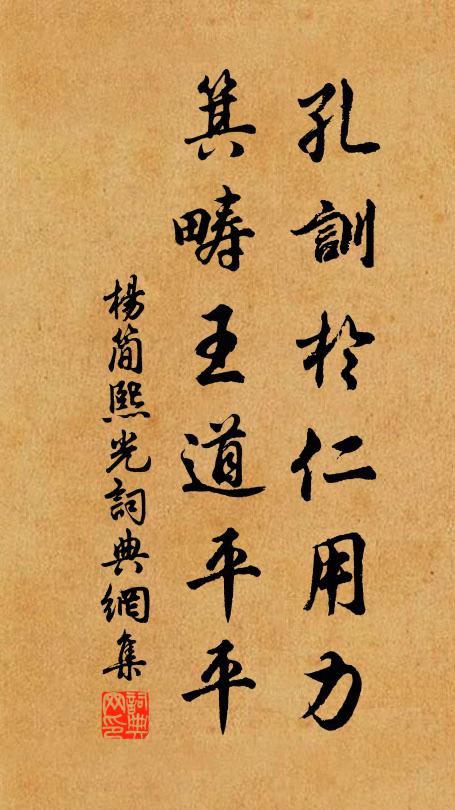 孔訓於仁用力
箕疇王道平平
楊簡熙光詞典網集
詞典
网印